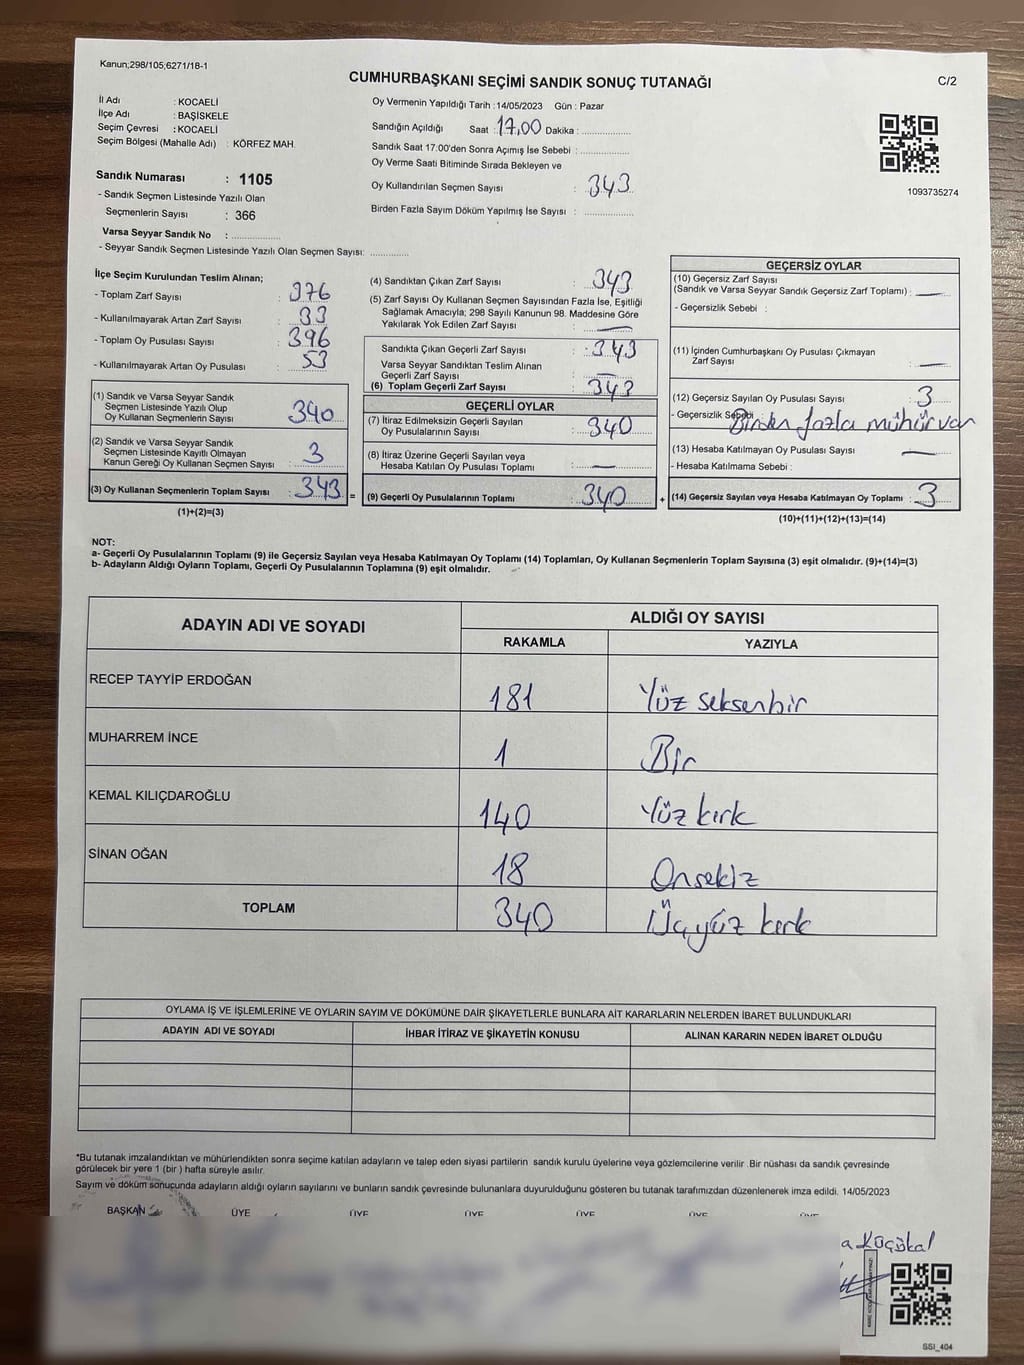 Kanun;298/105;6271/18-1
CUMHURBAŞKANI SEÇİMİ SANDIK SONUÇ TUTANAĞI
C/2
İl Adı : KOCAELİ
İlçe Adı : BAŞİSKELE
Seçim Çevresi : KOCAELİ
Seçim Bölgesi (Mahalle Adı) : KÖRFEZ MAH.
Sandık Numarası : 1105
- Sandık Seçmen Listesinde Yazılı Olan
Seçmenlerin Sayısı : 366
Varsa Seyyar Sandık No : ................
- Seyyar Sandık Seçmen Listesinde Yazılı Olan Seçmen Sayısı: .............
Oy Vermenin Yapıldığı Tarih : 14/05/2023 Gün : Pazar
Sandığın Açıldığı Saat : 17,00 Dakika : ................
Sandık Saat 17:00'den Sonra Açımış İse Sebebi : ................
Oy Verme Saati Bitiminde Sırada Bekleyen ve
Oy Kullandırılan Seçmen Sayısı : 343
Birden Fazla Sayım Döküm Yapılmış İse Sayısı : ................
1093735274
İlçe Seçim Kurulundan Teslim Alınan;
- Toplam Zarf Sayısı : 376
- Kullanılmayarak Artan Zarf Sayısı : 33
- Toplam Oy Pusulası Sayısı : 396
- Kullanılmayarak Artan Oy Pusulası : 53
(1) Sandık ve Varsa Seyyar Sandık
Seçmen Listesinde Yazılı Olup
Oy Kullanan Seçmenlerin Sayısı : 340
(2) Sandık ve Varsa Seyyar Sandık
Seçmen Listesinde Kayıtlı Olmayan
Kanun Gereği Oy Kullanan Seçmen Sayısı : 3
(3) Oy Kullanan Seçmenlerin Toplam Sayısı : 343 =
(1)+(2)=(3)
(4) Sandıktan Çıkan Zarf Sayısı : 343
(5) Zarf Sayısı Oy Kullanan Seçmen Sayısından Fazla İse, Eşitliği
Sağlamak Amacıyla; 298 Sayılı Kanunun 98. Maddesine Göre
Yakılarak Yok Edilen Zarf Sayısı : —
Sandıkta Çıkan Geçerli Zarf Sayısı : 343
Varsa Seyyar Sandıktan Teslim Alınan
Geçerli Zarf Sayısı : —
(6) Toplam Geçerli Zarf Sayısı : 343
GEÇERLİ OYLAR
(7) İtiraz Edilmeksizin Geçerli Sayılan
Oy Pusulalarının Sayısı : 340
(8) İtiraz Üzerine Geçerli Sayılan veya
Hesaba Katılan Oy Pusulası Toplamı : —
(9) Geçerli Oy Pusulalarının Toplamı : 340 +
GEÇERSİZ OYLAR
(10) Geçersiz Zarf Sayısı
(Sandık ve Varsa Seyyar Sandık Geçersiz Zarf Toplamı) : —
- Geçersizlik Sebebi :
(11) İçinden Cumhurbaşkanı Oy Pusulası Çıkmayan
Zarf Sayısı : —
(12) Geçersiz Sayılan Oy Pusulası Sayısı : 3
- Geçersizlik Sebebi : Birden fazla mühür var
(13) Hesaba Katılmayan Oy Pusulası Sayısı : —
- Hesaba Katılmama Sebebi :
(14) Geçersiz Sayılan veya Hesaba Katılmayan Oy Toplamı : 3
(10)+(11)+(12)+(13)=(14)
NOT:
a- Geçerli Oy Pusulalarının Toplamı (9) ile Geçersiz Sayılan veya Hesaba Katılmayan Oy Toplamı (14) Toplamları, Oy Kullanan Seçmenlerin Toplam Sayısına (3) eşit olmalıdır. (9)+(14)=(3)
b- Adayların Aldığı Oyların Toplamı, Geçerli Oy Pusulalarının Toplamına (9) eşit olmalıdır.
ADAYIN ADI VE SOYADI
ALDIĞI OY SAYISI
RAKAMLA YAZIYLA
RECEP TAYYİP ERDOĞAN 181 Yüz seksenbir
MUHARREM İNCE 1 Bir
KEMAL KILIÇDAROĞLU 140 Yüz kırk
SİNAN OĞAN 18 Onsekiz
TOPLAM 340 Üçyüz kırk
OYLAMA İŞ VE İŞLEMLERİNE VE OYLARIN SAYIM VE DÖKÜMÜNE DAİR ŞİKAYETLERLE BUNLARA AİT KARARLARIN NELERDEN İBARET BULUNDUKLARI
ADAYIN ADI VE SOYADI İHBAR İTİRAZ VE ŞİKAYETİN KONUSU ALINAN KARARIN NEDEN İBARET OLDUĞU
*Bu tutanak imzalandıktan ve mühürlendikten sonra seçime katılan adayların ve talep eden siyasi partilerin sandık kurulu üyelerine veya gözlemcilerine verilir .Bir nüshası da sandık çevresinde
görülecek bir yere 1 (bir ) hafta süreyle asılır.
Sayım ve döküm sonucunda adayların aldığı oyların sayılarını ve bunların sandık çevresinde bulunanlara duyurulduğunu gösteren bu tutanak tarafımızdan düzenlenerek imza edildi. 14/05/2023
BAŞKAN ÜYE ÜYE ÜYE ÜYE ÜYE
SSI_404